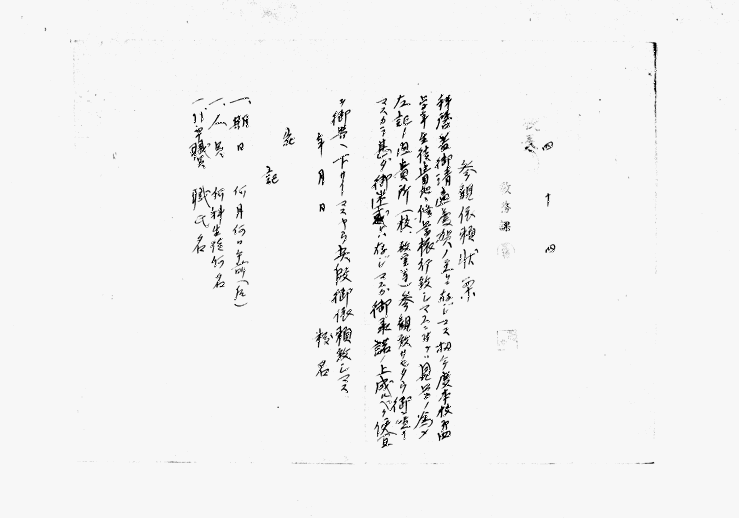 四、十、四
教務課
参観依頼状案
拝啓 益御清適慶賀ノ至ニ存ジマス 扨今度本校第四
学年生徒貴地ヘ修学旅行致シマスニ付テハ見学ノ為メ
左記ノ通貴所(校、教室等)参観致サセタク御迷惑
マスカラ甚ダ御迷惑トハ存ジマスガ御承諾ノ上成ルベク便宜
ヲ御与ヘ下サイマスヤウ此段御依頼致シマス
年 月 日
校名
宛
記
一、期日 何月何日午前(后)
一、人員 何科生徒何名
一、引率職員 職氏名